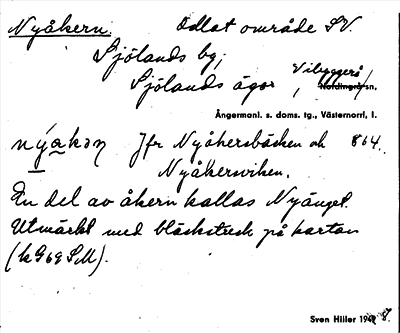 Nyåkern. Odlat område SV.
Sjölands by;
Sjölands ägor, Vibyggerå
Nordingrå sn.
Ångermanl. s. doms. tg., Västernorrl, l.
Jfr Nyåkersbäcken och 864.
Nyåkersviken.
En del av åkern kallas Nyänget.
Utmärkt med bläckstreck på kartan
(kG69SM).
Sven Hiller 1948.